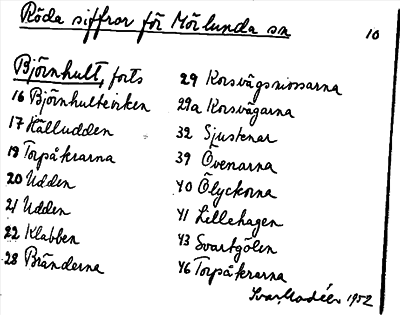 Röda siffror för Mörlunda sn 10
Björnhult, forts
16 Björnhultevirken
17 Källudden
19 Torpåkrarna
20 Udden
21 Udden
22 Klabben
28 Bränderna
29 Korsvägsmossarna
29a Korsvägarna
32 Sjustenar
39 Övenarna
40 Ölyckorna
41 Lillehagen
43 Svartgölen
46 Torpåkrarna
1952